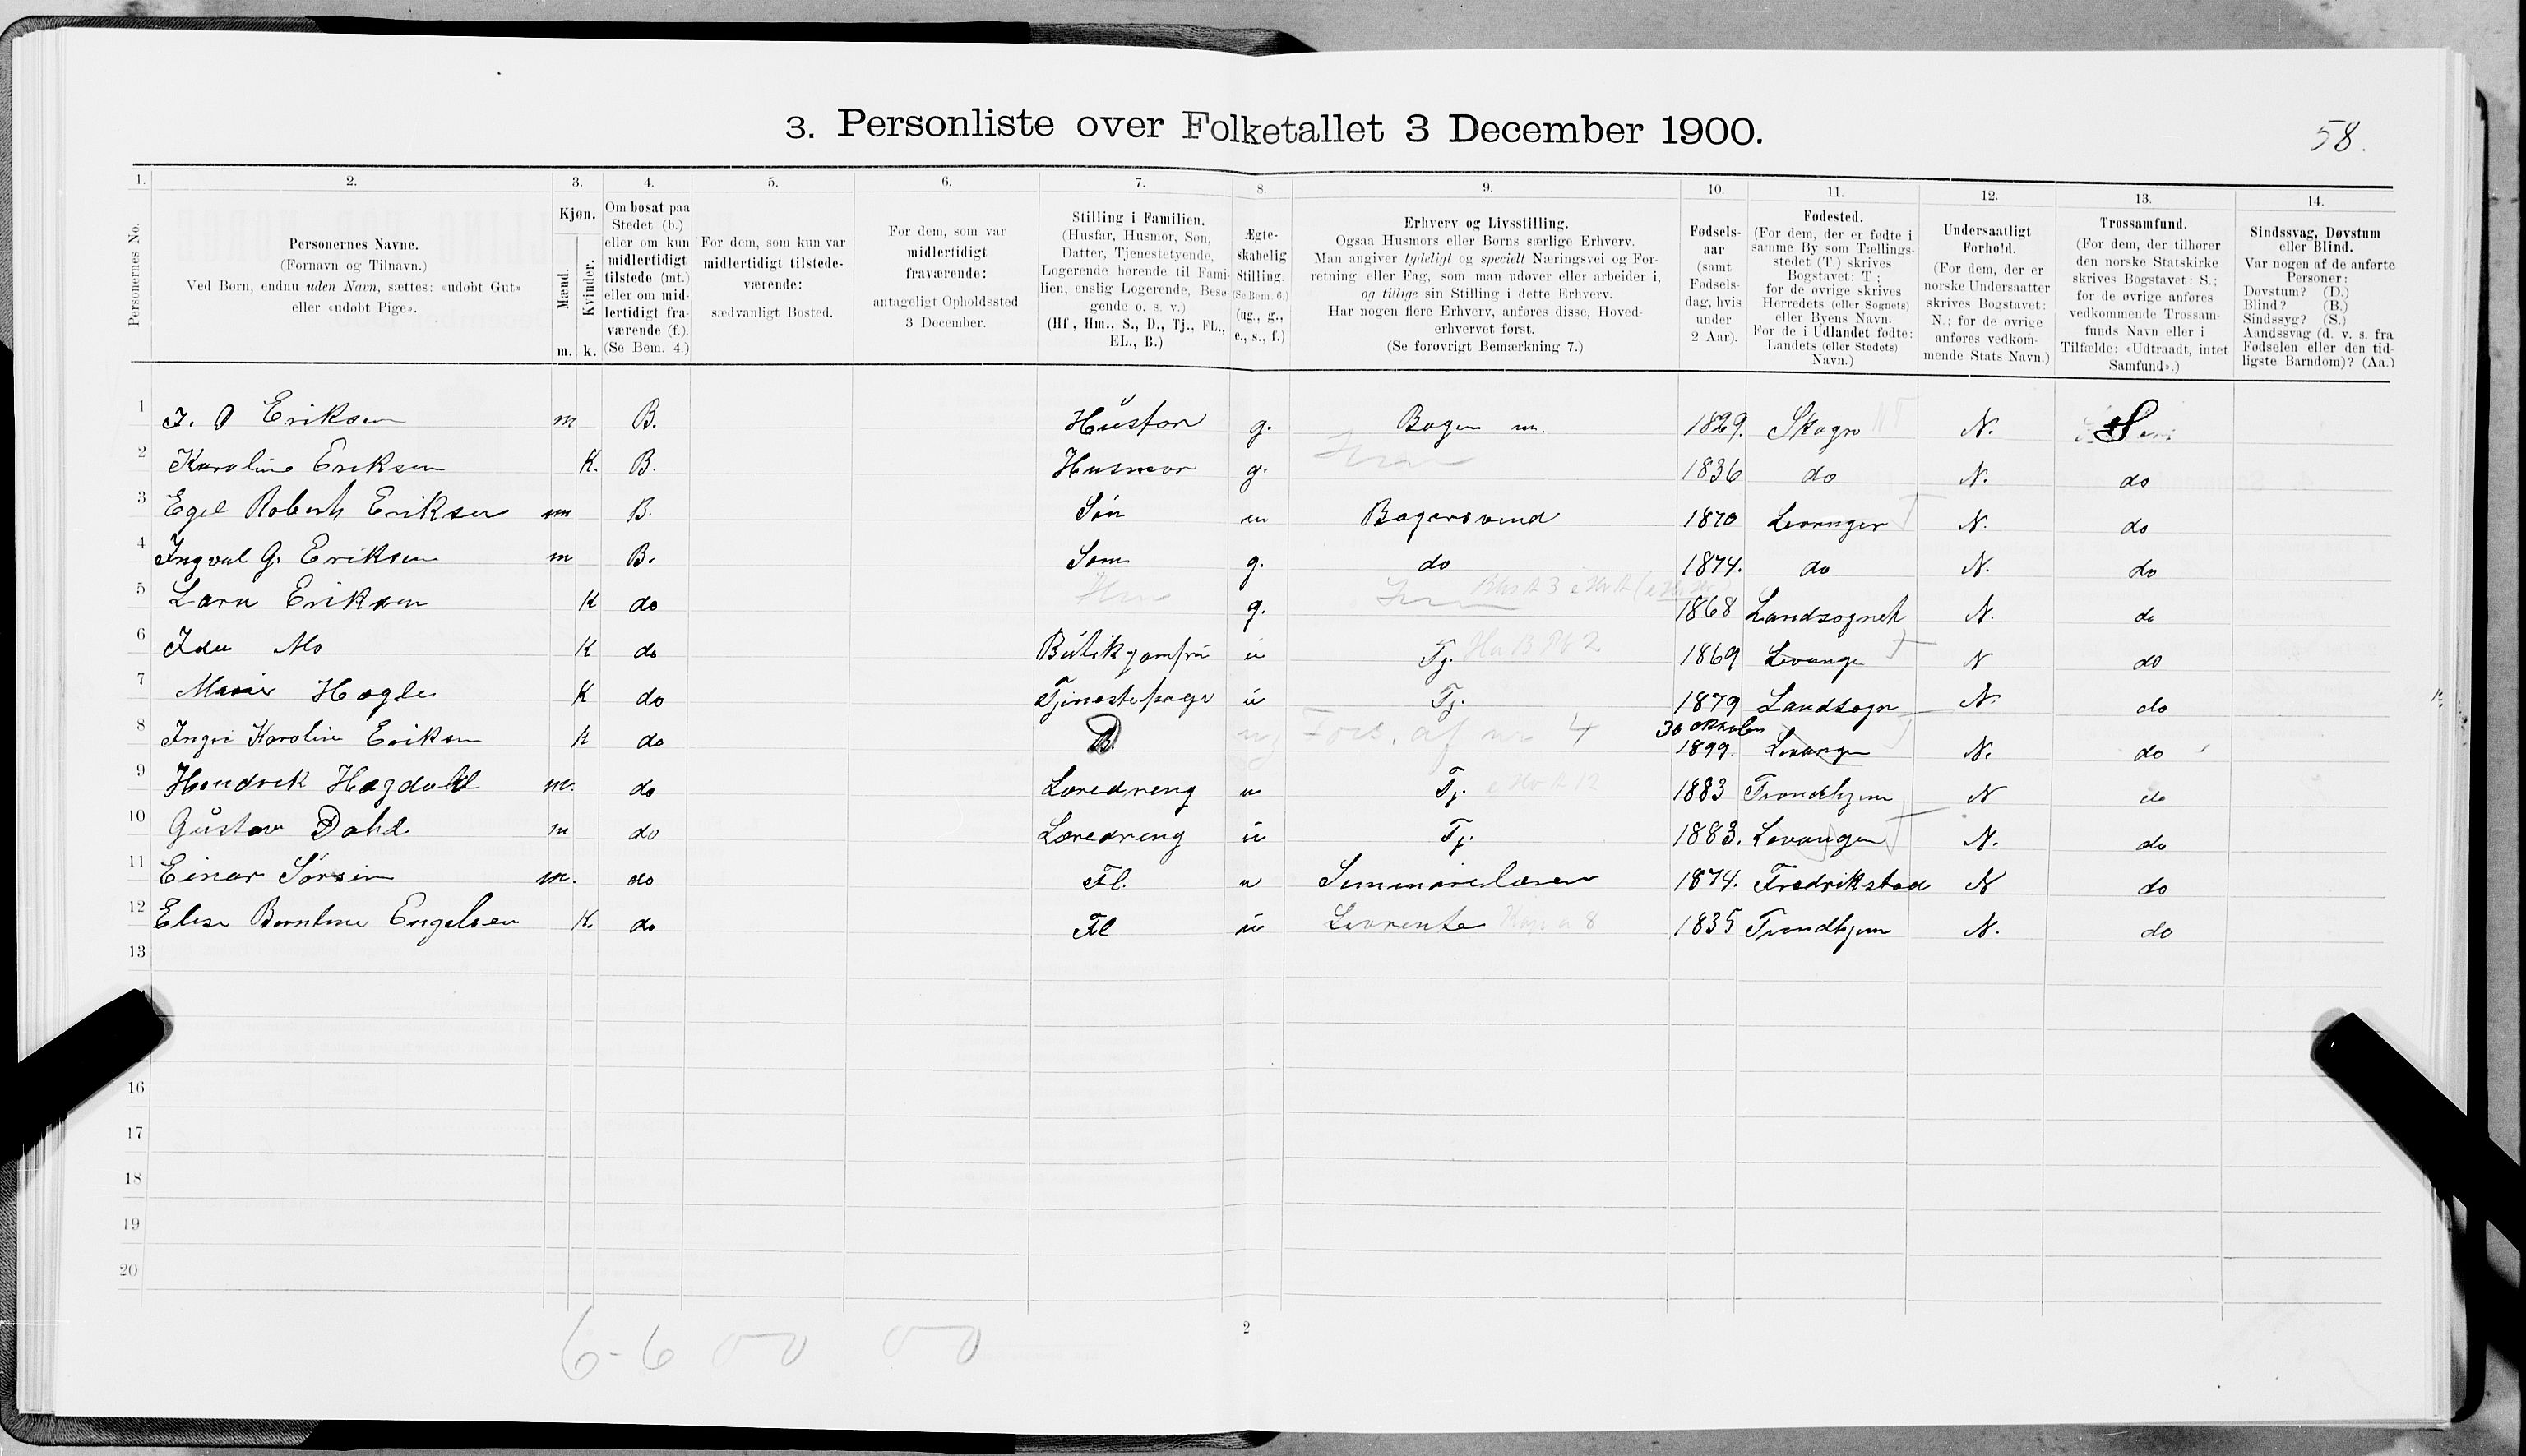 3. Personliste over Folketallet 3 December 1900.
58.
1. 2. 3. 4. 5. 6. 7. 8. 9. 10. 11. 12. 13. 14.
Personernes No.
Personernes Navne.
(Fornavn og Tilnavn.)
Ved Børn, endnu uden Navn, sættes: «udøbt Gut»
eller «udøbt Pige».
Kjøn.
Mænd.
Kvinder.
m. k.
Om bosat paa
Stedet (b.)
eller om kun
midlertidigt
tilstede (mt.)
eller om mid-
lertidigt fra-
værende (f.).
(Se Bem. 4.)
For dem, som kun var
midlertidigt tilstede-
værende:
sædvanligt Bosted.
For dem, som var
midlertidigt
fraværende:
antageligt Opholdssted
3 December.
Stilling i Familien.
(Husfar, Husmor, Søn,
Datter, Tjenestetyende,
Logerende hørende til Fami-
lien, enslig Logerende, Besø-
gende o. s. v.)
(Hf, Hm., S., D., Tj., FL.,
EL., B.)
Ægte-
skabelig
Stilling.
(Se Bem. 6.)
(ug., g.,
e., s., f.)
Erhverv og Livsstilling.
Ogsaa Husmors eller Børns særlige Erhverv.
Man angiver tydeligt og specielt Næringsvei og For-
retning eller Fag, som man udøver eller arbeider i,
og tillige sin Stilling i dette Erhverv.
Har nogen flere Erhverv, anføres disse, Hoved-
erhvervet først.
(Se forøvrigt Bemærkning 7.)
Fødsels-
aar
(samt
Fødsels-
dag, hvis
under
2 Aar).
Fødested.
(For dem, der er fødte i
samme By som Tællings-
stedet (T.) skrives
Bogstavet: T;
for de øvrige skrives
Herredets (eller Sognets)
eller Byens Navn.
For de i Udlandet fødte:
Landets (eller Stedets)
Navn.)
Undersaatligt
Forhold.
(For dem, der er
norske Undersaatter
skrives Bogstavet:
N.; for de øvrige
anføres vedkom-
mende Stats Navn.)
Trossamfund.
(For dem, der tilhører
den norske Statskirke
skrives Bogstavet: S.;
for de øvrige anføres
vedkommende Trossam-
funds Navn eller i
Tilfælde: «Udtraadt, intet
Samfund».)
Sindssvag, Døvstum
eller Blind.
Var nogen af de anførte
Personer:
Døvstum? (D.)
Blind? (B.)
Sindssyg? (S.)
Aandssvag (d. v. s. fra
Fødselen eller den tid-
ligste Barndom)? (Aa.)
1 J. O Eriksen m B. Husfar g. Bager m. 1829. Skogn N. S
2 Karoline Eriksen K. B. Husmor g. 1836 do N. do
3 Egel Robert Eriksen m B. Søn u Bagersvend 1870 Levanger T N. do
4 Ingval G. Eriksen m B. Søn g. do 1874. do N. do
5 Lara Eriksen K do Hm g. 1868 Landsognet N. do
6 Ida Mo K do Butikjomfru u Tj. 1869 Levanger T N do
7 Marie Hogle K do Tjenestepige u Tj. 1879 Landsogn N. do
8 Ingri Karoline Eriksen K do B. ug Fors. af nr 4 30 oktober 1899 Levanger N. do
9 Hendrik Hagdahl m. do Læredreng u Tj. 1883 Trondhjem N do
10 Gustav Dahl m do Læredreng u Tj. 1883. Levanger T N. do
11 Einar Sørsin m. do Fl. u Seminarielærer 1874. Fredrikstad N do
12 Elise Berntine Engelsen K. do Fl u Livrente 1835 Trondhjem N. do
13
16
17
18
19
20
6-6
2